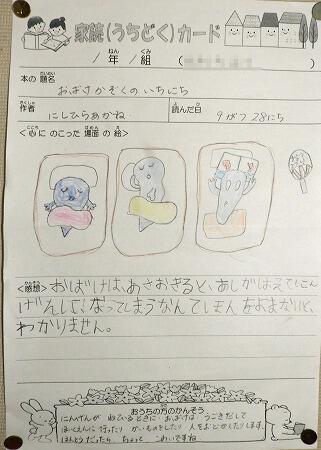 家読(うちどく)カード
1年1組
本の題名
おばけかぞくのいちにち
作者 にしひらあかね
読んだ日 9がつ28にち
<心にのこった場面の絵>
<感想>おばけは、あさおきると、あしがはえてにんげんに、なってしまうなんてほんをよまないと、
わかりません。
おうちの方のかんそう
にんげんが ねているときに おばけは うごきだして
ほいくえんに行ったり かいものをしたり 人をおどかしたりします。
ほんとうだったら、ちょっと こわいですね